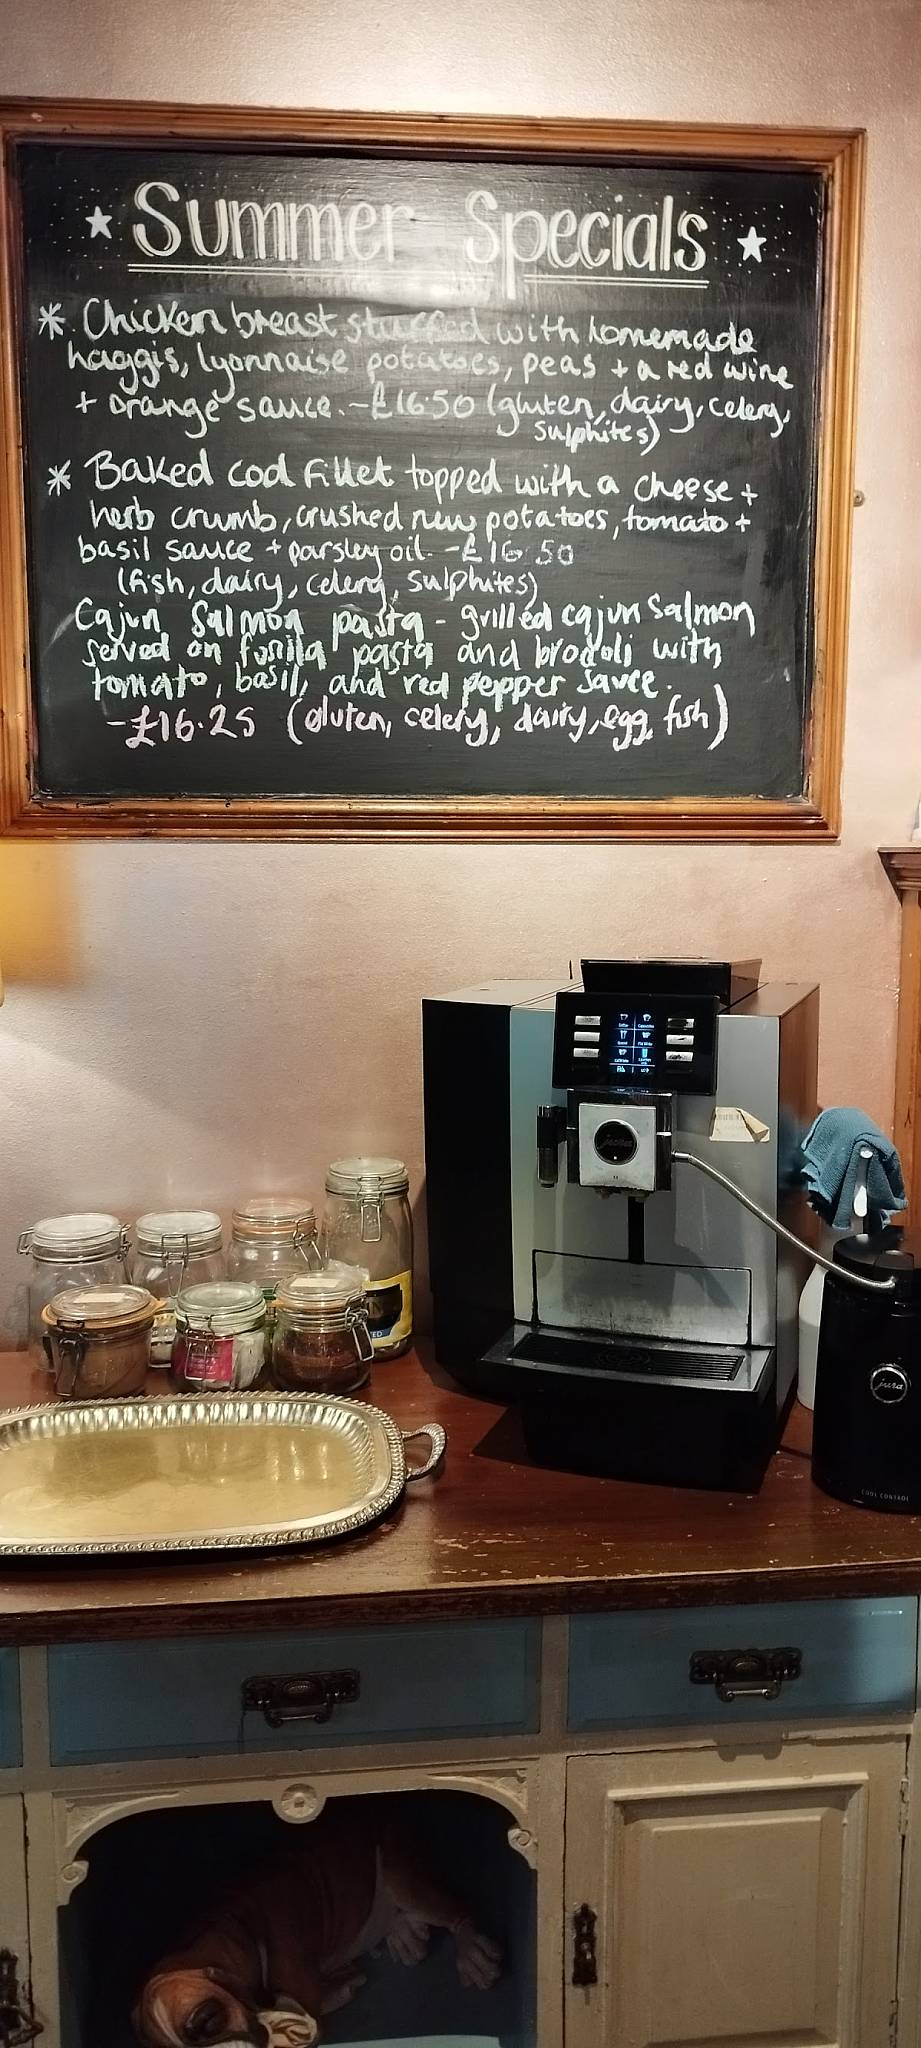 Summer Specials
* Chicken breast stuffed with homemade
haggis, lyonnaise potatoes, peas + a red wine
+ orange sauce. - £16.50 (gluten, dairy, celery,
sulphites)
* Baked cod fillet topped with a cheese +
herb crumb, crushed new potatoes, tomato +
basil sauce + parsley oil. - £16.50
(fish, dairy, celery, sulphites)
Cajun Salmon pasta - grilled cajun Salmon
served on fusilla pasta and brocoli with
tomato, basil, and red pepper sauce.
- £16.25 (gluten, celery, dairy, egg, fish)
jura
jura
COOL CONTROL